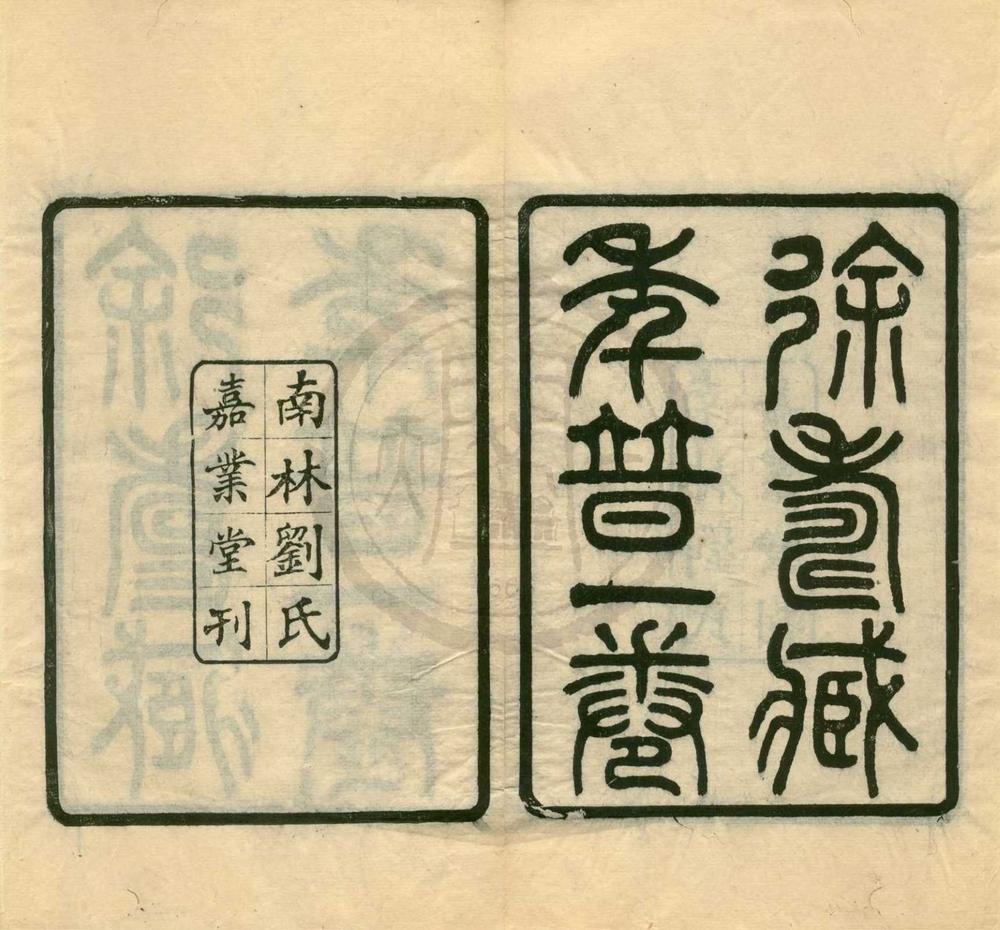 徐壽臧
年普一卷
南林劉氏
嘉業堂刊